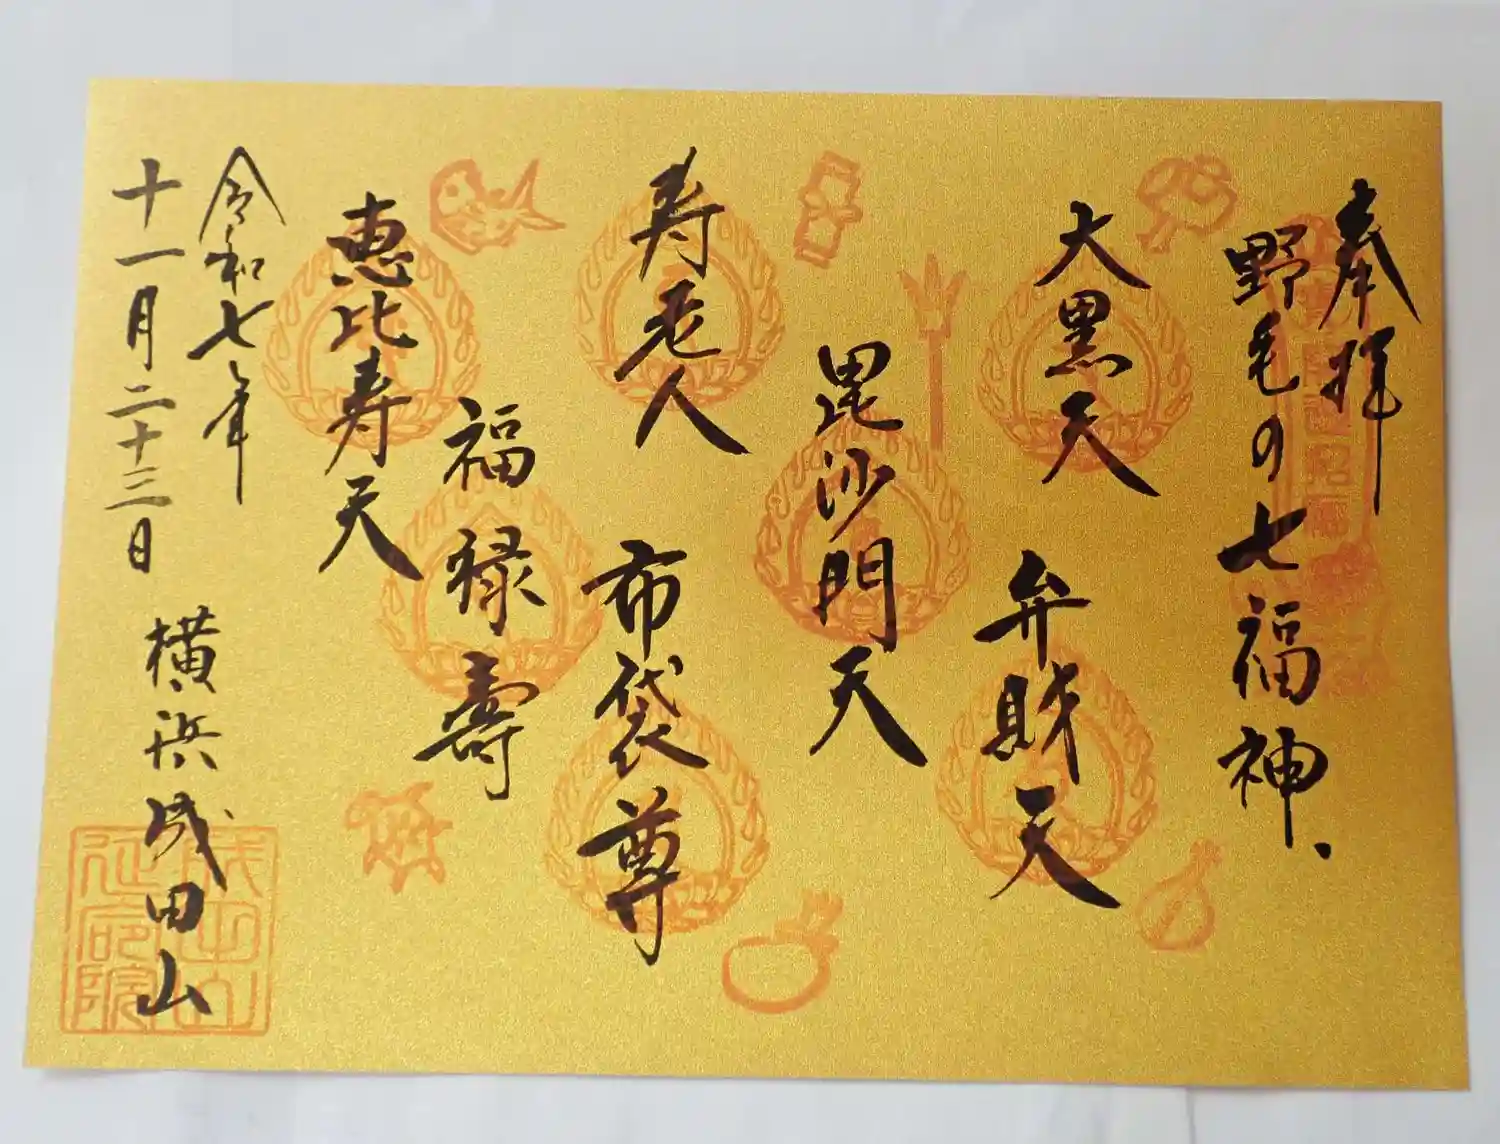 奉拝
野毛の七福神、
大黒天
弁財天
毘沙門天
寿老人
布袋尊
福禄壽
恵比寿天
令和七年
十一月二十三日
横浜成田山
成田山
延命院